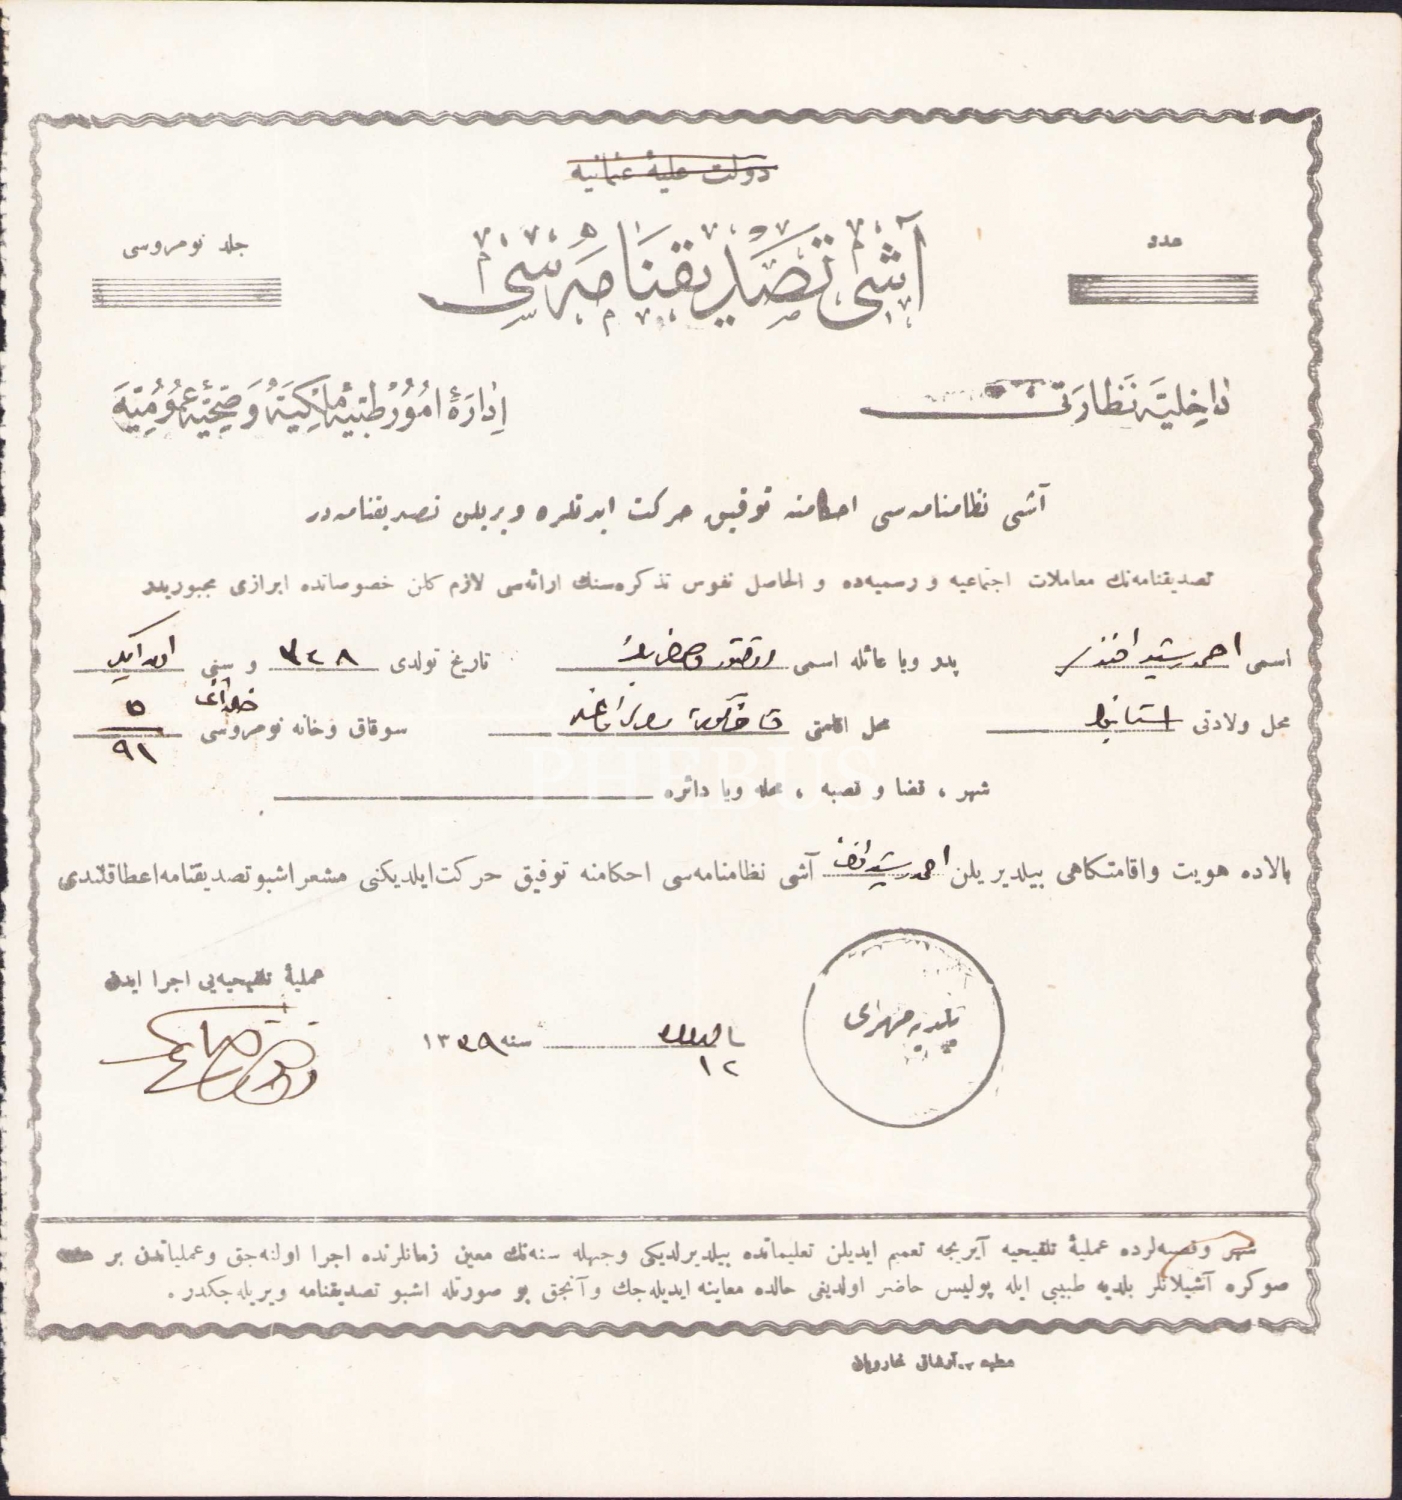 دولت علیهٔ عثمانیه
عدد
آشی تصدیقنامه‌سی
جلد نومروسی
داخلیه نظارتی
ادارهٔ امور طبیهٔ ملکیه و صحیهٔ عمومیه
آشی نظامنامه‌سی احکامنه توفیق حرکت ایدنلره ویریلن تصدیقنامه‌در
تصدیقنامه‌نك معاملات اجتماعیه و رسمیه‌ده و الحاصل نفوس تذکره‌سنك ارائه‌سی لازم کلن خصوصاتده ابرازی مجبوریدر
اسمی احمد رشید افندی پدر ویا عائله اسمی دوقتور تاریخ تولدی ٣٣٨ و سنی اون آیلق
محل ولادتی استانبول محل اقامتی سوقاق وخانه نومروسی ٥ ٩١
شهر ، قضا و قصبه ، محله ویا دائره
بالاده هویت واقامتکاهی بیلدیریلن احمد رشید افندی آشی نظامنامه‌سی احکامنه توفیق حرکت ایلدیکنی مشعر اشبو تصدیقنامه اعطا قلندی
عملیهٔ تلقیحیه‌یی اجرا ایدن
١٢
سنه ١٣٣٩
PHEBUS
شهر وقصبه‌لرده عملیهٔ تلقیحیه آیریجه تعمیم ایدیلن تعلیماتده بیلدیرلدیکی وجهله سنه‌نك معین زمانلرنده اجرا اولنه‌جق وعملیاتدن بر هفته
صوکره آشیلانلر بلدیه طبیبی ایله پولیس حاضر اولدیغی حالده معاینه ایدیله‌جك وآنجق بو صورتله اشبو تصدیقنامه ویریله‌جکدر .
مطبعه